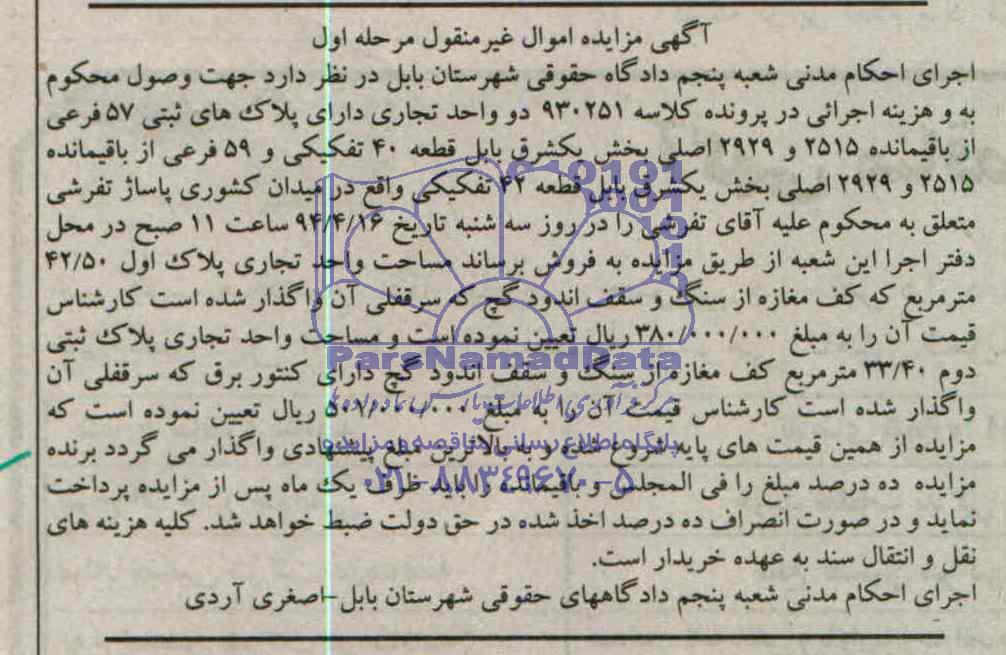 آگهی مزایده اموال غیرمنقول مرحله اول
اجرای احکام مدنی شعبه پنجم دادگاه حقوقی شهرستان بابل در نظر دارد جهت وصول محکوم
به و هزینه اجرائی در پرونده کلاسه ۹۳۰۲۵۱ دو واحد تجاری دارای پلاک های ثبتی ۵۷ فرعی
از باقیمانده ۲۵۱۵ و ۲۹۲۹ اصلی بخش یکشرق بابل قطعه ۴۰ تفکیکی و ۵۹ فرعی از باقیمانده
۲۵۱۵ و ۲۹۲۹ اصلی بخش یکشرق بابل قطعه ۴۲ تفکیکی واقع در میدان کشوری پاساژ تفرشی
متعلق به محکوم علیه آقای تفرشی را در روز سه شنبه تاریخ ۹۴/۴/۱۶ ساعت ۱۱ صبح در محل
دفتر اجرا این شعبه از طریق مزایده به فروش برساند مساحت واحد تجاری پلاک اول ۴۲/۵۰
مترمربع که کف مغازه از سنگ و سقف اندود گچ که سرقفلی آن واگذار شده است کارشناس
قیمت آن را به مبلغ ۳۸۰/۰۰۰/۰۰۰ ریال تعیین نموده است و مساحت واحد تجاری پلاک ثبتی
ParsNamadData
دوم ۳۳/۴۰ مترمربع کف مغازه از سنگ و سقف اندود گچ دارای کنتور برق که سرقفلی آن
واگذار شده است کارشناس قیمت آن را به مبلغ ۵۰۱/۰۰۰/۰۰۰ ریال تعیین نموده است که
مزایده از همین قیمت های پایه شروع شده و به بالاترین مبلغ پیشنهادی واگذار می گردد برنده
پایگاه اطلاع رسانی مناقصه و مزایده
مزایده ده درصد مبلغ را فی المجلس و باقیمانده را باید ظرف یک ماه پس از مزایده پرداخت
۰۲۱-۸۸۳۴۹۶۷۰-۵
نماید و در صورت انصراف ده درصد اخذ شده در حق دولت ضبط خواهد شد. کلیه هزینه های
نقل و انتقال سند به عهده خریدار است.
اجرای احکام مدنی شعبه پنجم دادگاههای حقوقی شهرستان بابل-اصغری آردی